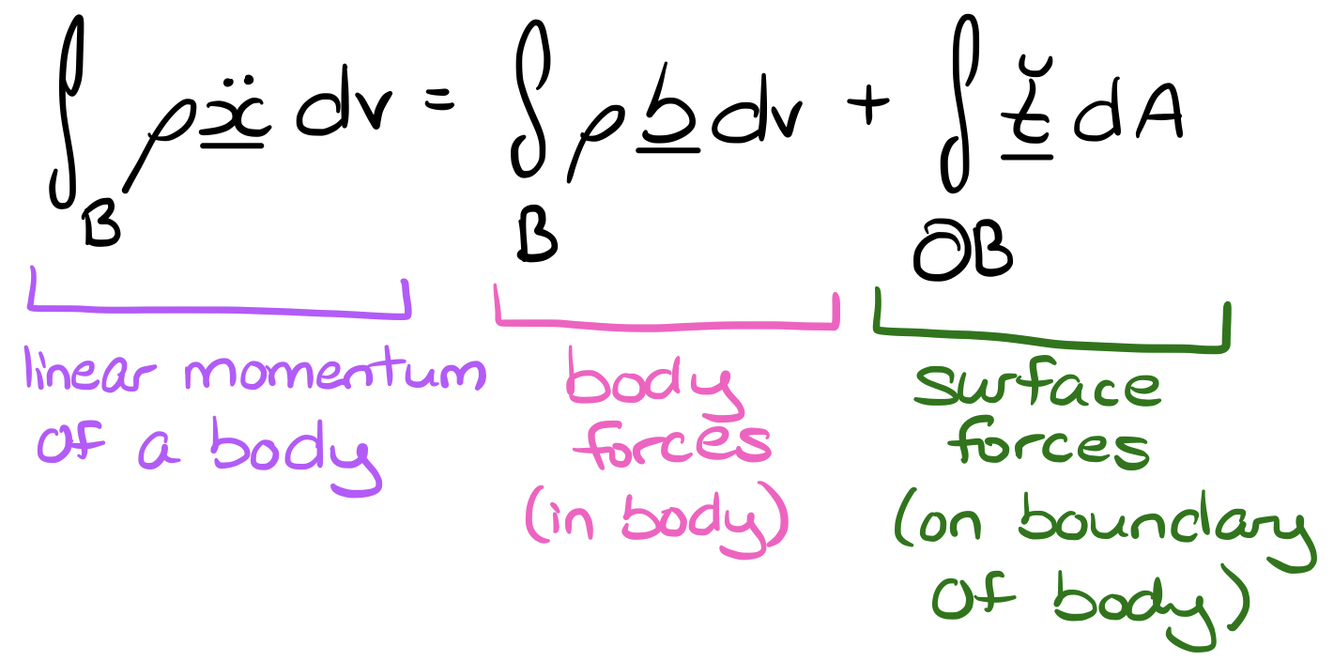 ∫_B ρẍ dv = ∫_B ρb dv + ∫_∂B t̆ dA
linear momentum
of a body
body
forces
(in body)
surface
forces
(on boundary
of body)